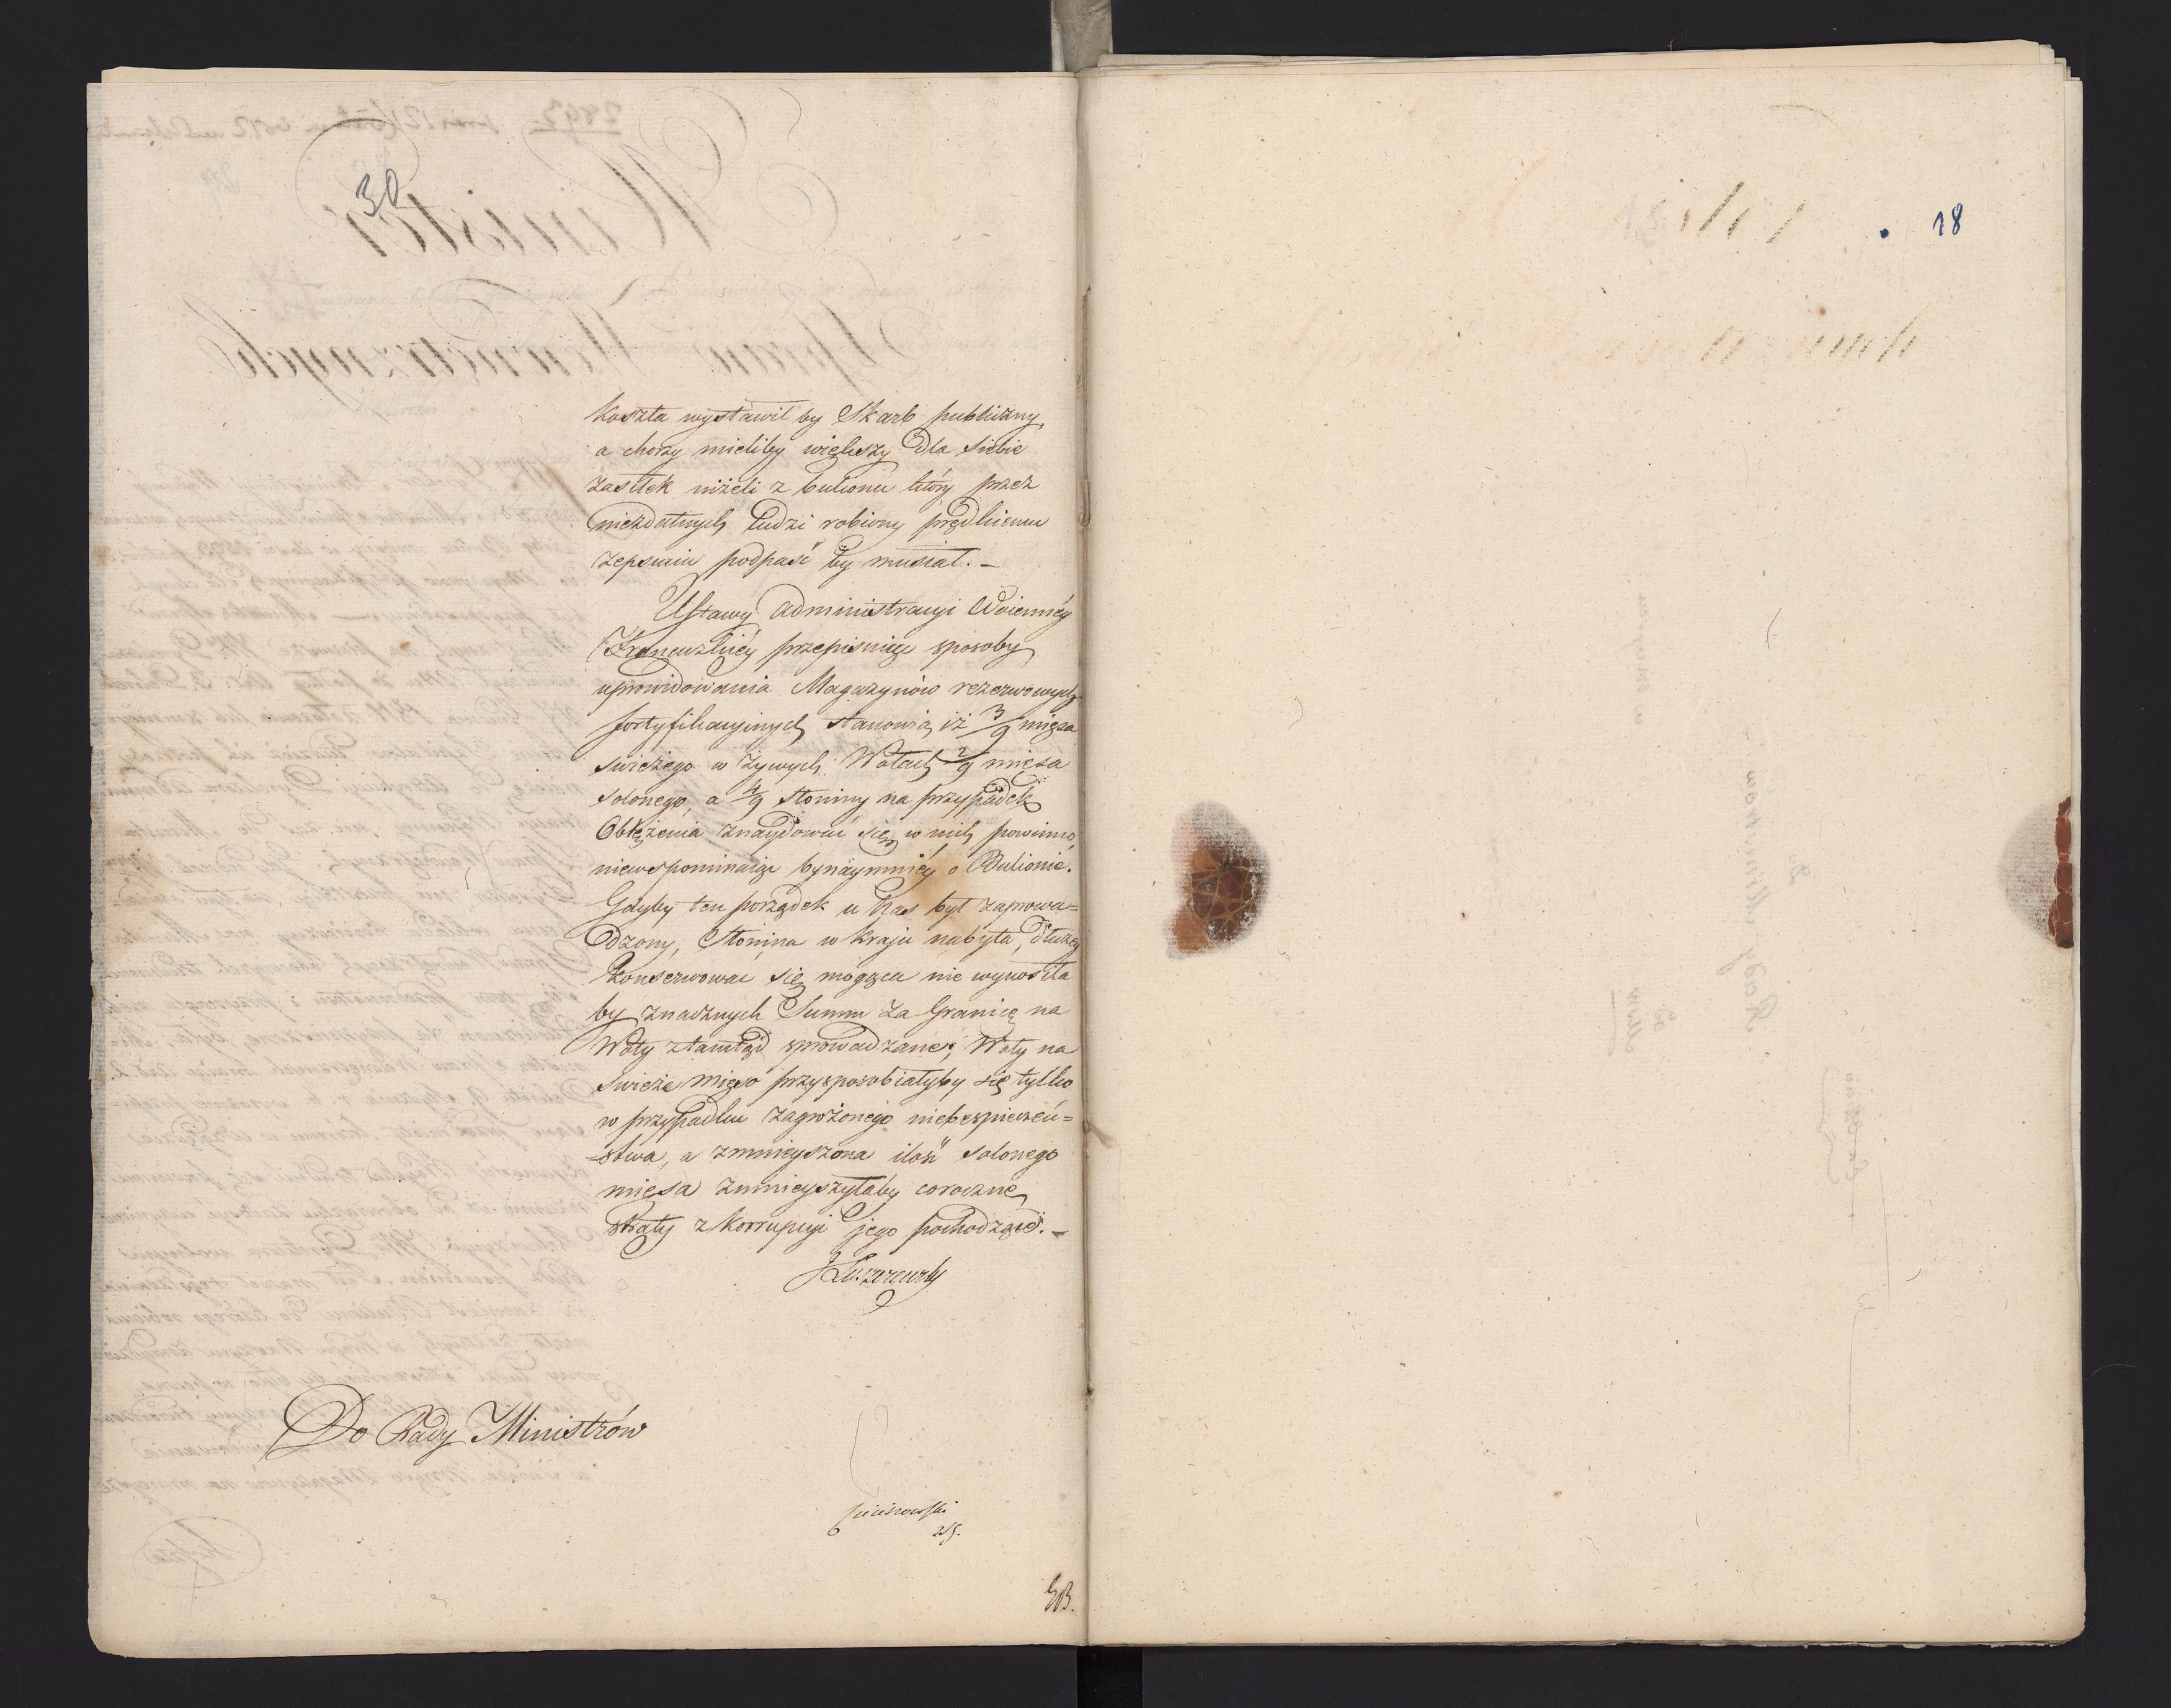 30
koszta wystawił by Skarb publiczny
a chorzy mieliby większy dla siebie
zasiłek niżeli z bulionu który przez
niezdatnych ludzi robiony prędkiemu
zepsuciu podpaść by musiał. –
Ustawy Administracyi Woienney
Francuzkiéy przepisuiąc sposoby
uprowidowania Magazynów rezerwowych
fortyfikacyinych stanowią, iż 3/9 mięsa
swieżego w żywych Wołach 2/9 mięsa
solonego, a 4/9 słoniny na przypadek
Oblężenia znaydować się w nich powinno,
niewspominaiąc bynaymniéy o Bulionie.
Gdyby ten porządek u Nas był zaprowa=
dzony, Słonina w kraju nabyta, dłużey
konserwować się mogąca nie wynosiła
by znacznych Summ za Granicę na
Woły ztamtąd sprowadzane; Woły na
swieże mięso przysposobiałyby się tylko
w przypadku zagrożonego niebezpieczeń=
=stwa, a zmnieyszona ilość solonego
mięsa zmnieyszyłaby coroczne
straty z korrupcyi jego pochodzące. –
JŁuszczewski
Do Rady Ministrów
18